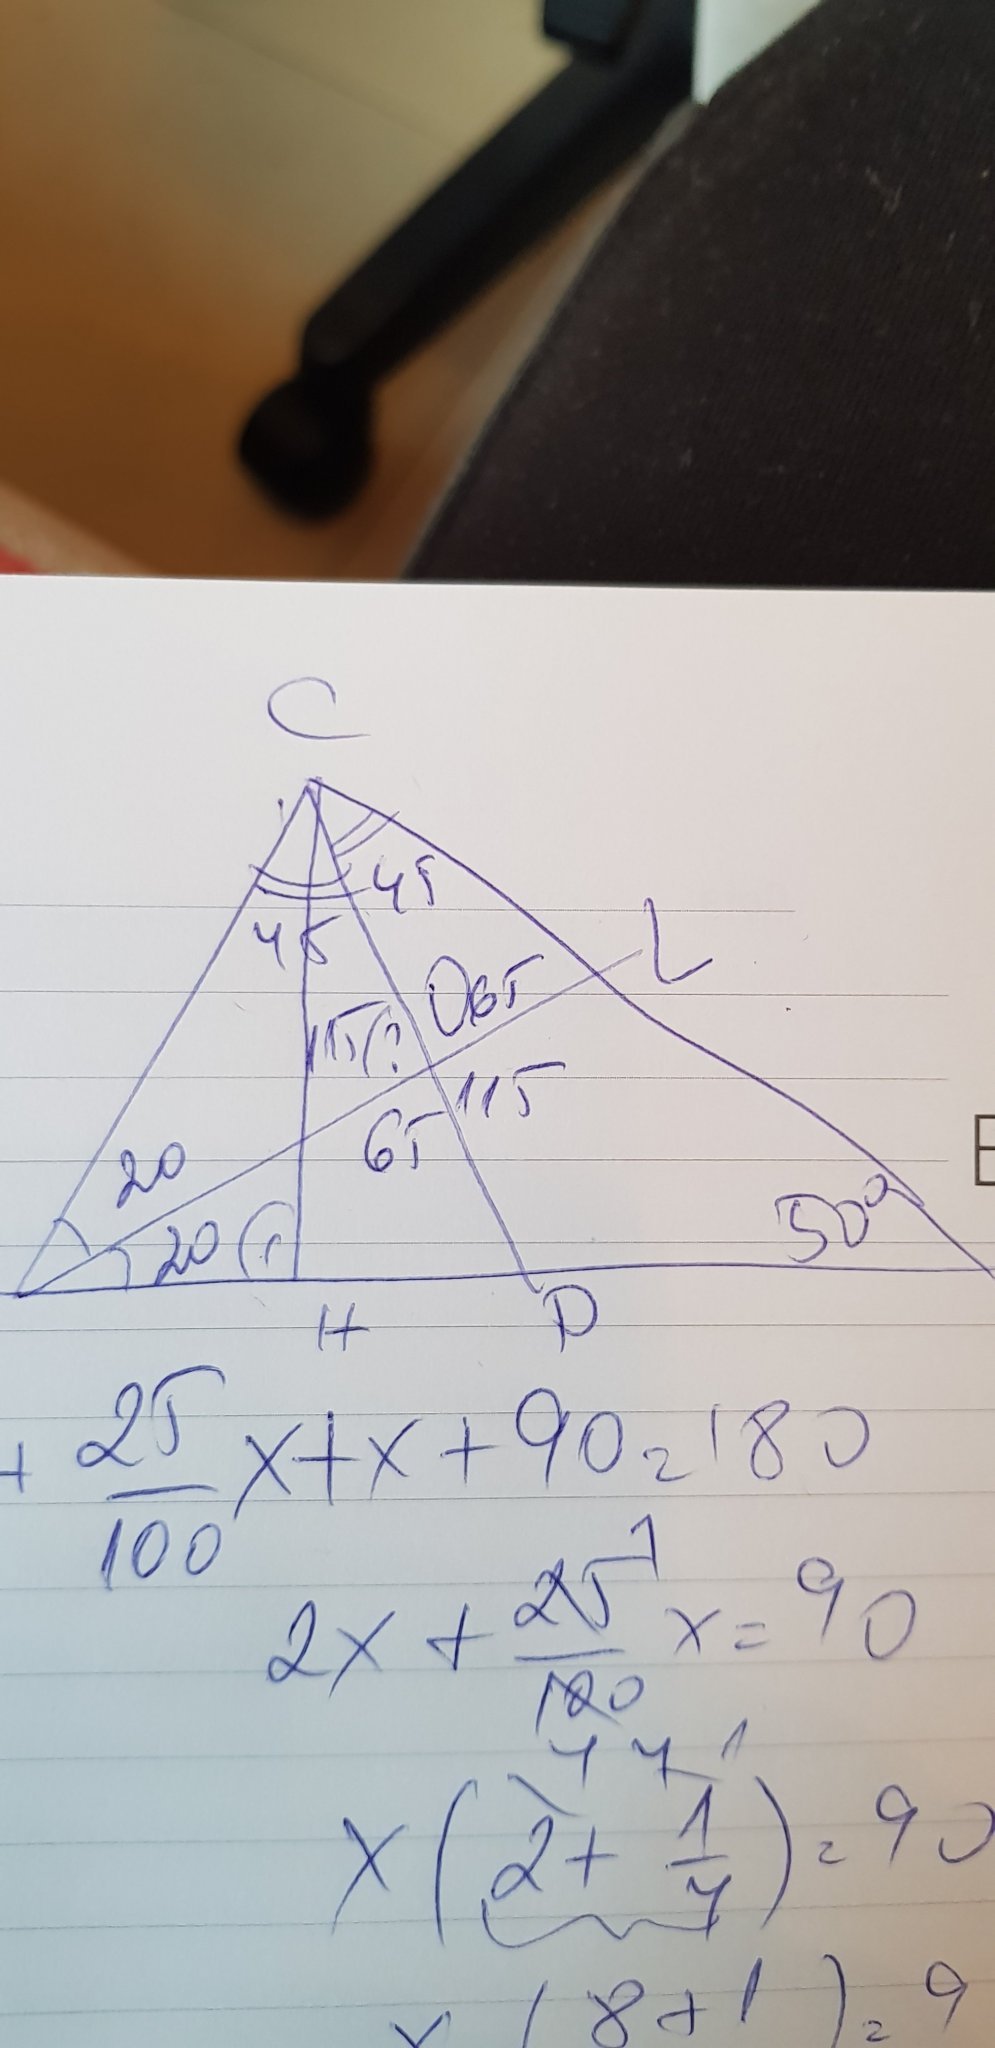 C
45
45
115
065
L
115
65
20
20
50°
H
D
+ 25/100 x + x + 90 = 180
2x + 25/100 x = 90
1
4 4 1
x (2 + 1/4) = 90
x (8 + 1) = 9